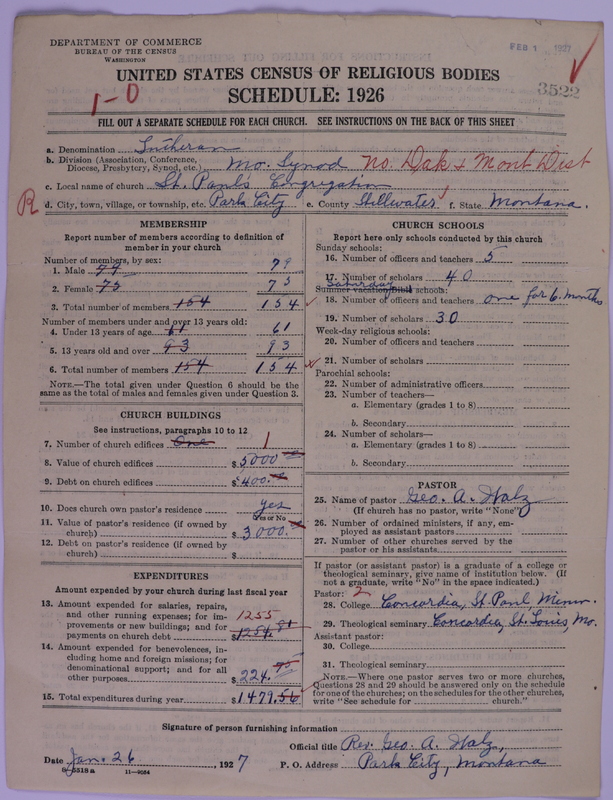 DEPARTMENT OF COMMERCE
BUREAU OF THE CENSUS
WASHINGTON
FEB 1 1927
3522
UNITED STATES CENSUS OF RELIGIOUS BODIES
SCHEDULE: 1926
1-0
FILL OUT A SEPARATE SCHEDULE FOR EACH CHURCH. SEE INSTRUCTIONS ON THE BACK OF THIS SHEET
a. Denomination Lutheran
b. Division (Association, Conference, Diocese, Presbytery, Synod, etc.) Mo. Synod No. Dak & Mont Dist
c. Local name of church St. Pauls Congregation
R
d. City, town, village, or township, etc. Park City e. County Stillwater f. State Montana.
MEMBERSHIP
Report number of members according to definition of member in your church
Number of members, by sex:
1. Male 79 79
2. Female 75 75
3. Total number of members 154 154
Number of members under and over 13 years old:
4. Under 13 years of age 61 61
5. 13 years old and over 93 93
6. Total number of members 154 154
NOTE.—The total given under Question 6 should be the same as the total of males and females given under Question 3.
CHURCH BUILDINGS
See instructions, paragraphs 10 to 12
7. Number of church edifices One 1
8. Value of church edifices $5000
9. Debt on church edifices $400.
10. Does church own pastor's residence yes
(Yes or No)
11. Value of pastor's residence (if owned by church) $3000.
12. Debt on pastor's residence (if owned by church) $
EXPENDITURES
Amount expended by your church during last fiscal year
13. Amount expended for salaries, repairs, and other running expenses; for improvements or new buildings; and for payments on church debt 1255 $1254.81
14. Amount expended for benevolences, including home and foreign missions; for denominational support; and for all other purposes $224.75
15. Total expenditures during year $1479.56
CHURCH SCHOOLS
Report here only schools conducted by this church
Sunday schools:
16. Number of officers and teachers 5
17. Number of scholars 40
Saturday
Summer vacation Bible schools:
18. Number of officers and teachers one for 6 months
19. Number of scholars 30
Week-day religious schools:
20. Number of officers and teachers
21. Number of scholars
Parochial schools:
22. Number of administrative officers
23. Number of teachers—
a. Elementary (grades 1 to 8)
b. Secondary
24. Number of scholars—
a. Elementary (grades 1 to 8)
b. Secondary
PASTOR
25. Name of pastor Geo. A. Walz
(If church has no pastor, write "None")
26. Number of ordained ministers, if any, employed as assistant pastors
27. Number of other churches served by the pastor or his assistants
If pastor (or assistant pastor) is a graduate of a college or theological seminary, give name of institution below. (If not a graduate, write "No" in the space indicated.)
Pastor: 2
28. College Concordia, St Paul, Minn.
29. Theological seminary Concordia, St. Louis, Mo.
Assistant pastor:
30. College
31. Theological seminary
NOTE.—Where one pastor serves two or more churches, Questions 28 and 29 should be answered only on the schedule for one of the churches; on the schedules for the other churches, write "See schedule for church."
Signature of person furnishing information
Official title Rev. Geo. A. Walz,
Date Jan. 26, 1927 P. O. Address Park City, Montana
8-5518 a 11-9034